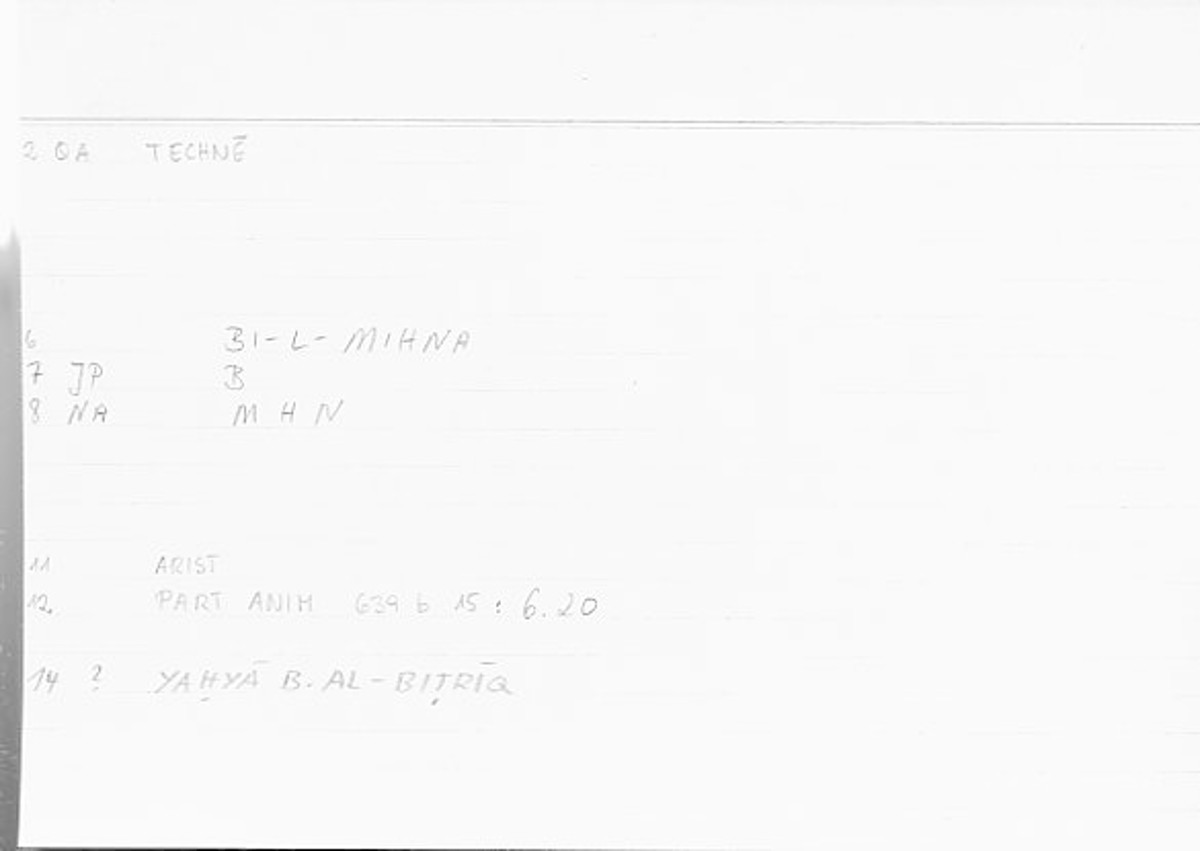 2 QA TECHNĒ
6 BI-L-MIHNA
7 JP B
8 NA M H N
11 ARIST
12. PART ANIM 639 b 15 : 6.20
14 ? YAḤYĀ B. AL-BIṬRĪQ